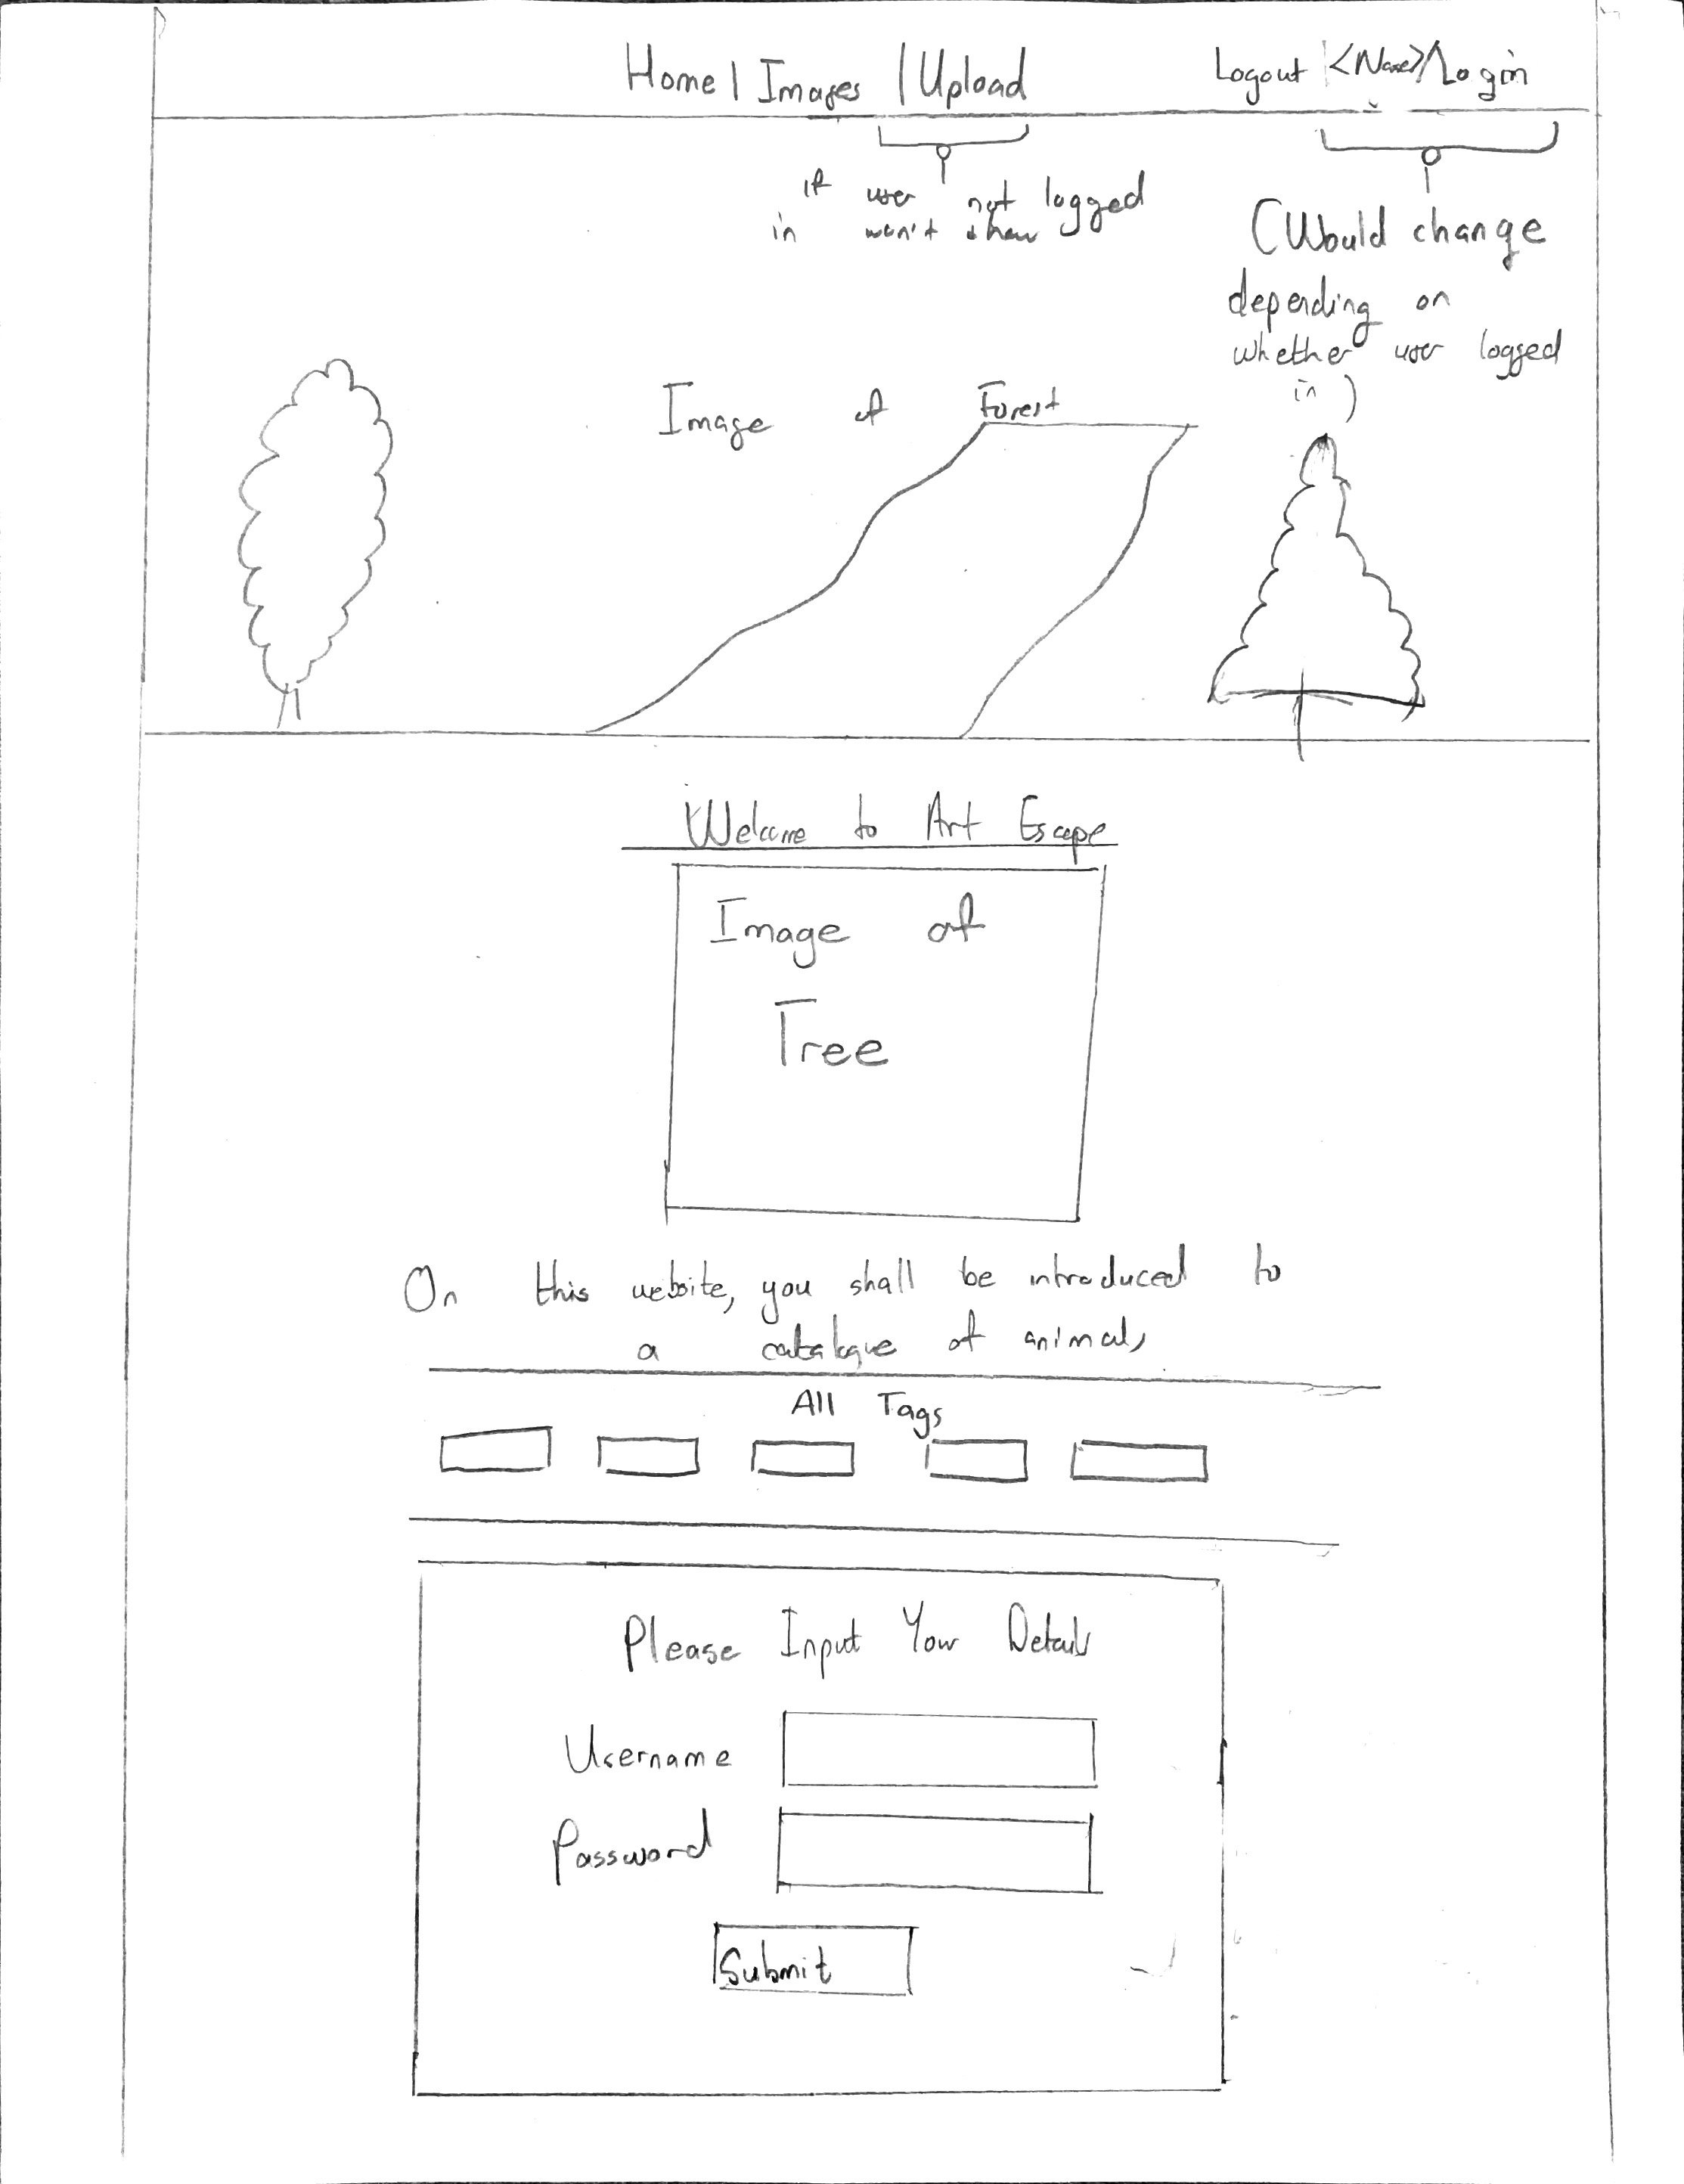 Home | Images | Upload
Logout | <Name>/Login
if user not logged
in won't show
(Would change
depending on
whether user logged
in)
Image of Forest
Welcome to Art Escape
Image of
Tree
On this website, you shall be introduced to
a catalogue of animals
All Tags
Please Input Your Details
Username
Password
Submit